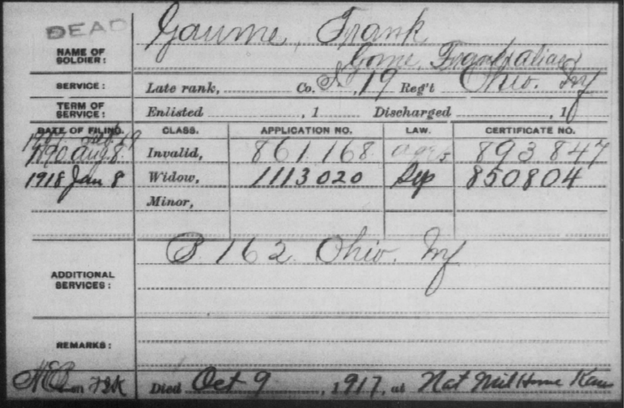 DEAD
Gaume, Frank
NAME OF SOLDIER:
Gome, Frank alias
SERVICE: Late rank, Co. , 19 Reg't Ohio. Inf
TERM OF SERVICE: Enlisted , 1 Discharged , 1
DATE OF FILING. CLASS. APPLICATION NO. LAW. CERTIFICATE NO.
1890 Aug. 8. Invalid, 861168 893847
1918 Jan 8 Widow, 1113020 Sep 850804
Minor,
B 162 Ohio. Inf
ADDITIONAL SERVICES:
REMARKS:
Died Oct 9, 1917, at Nat Mil Home Kan